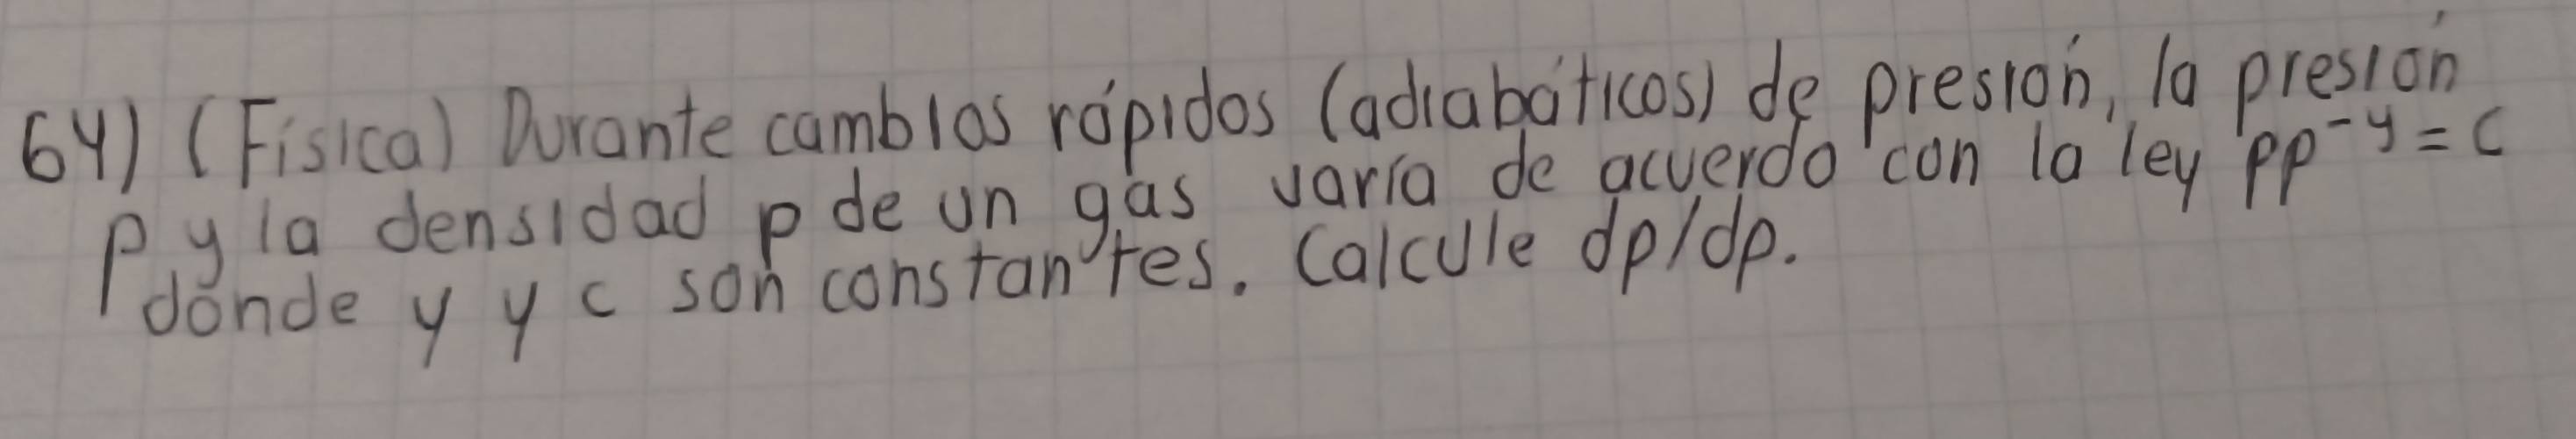 64) (Física) Durante cambios rápidos (adiabáticos) de presión, la presión
p y la densidad p de un gas varía de acuerdo con la ley pp⁻ʸ = c
donde y y c son constantes. Calcule dp/dp.